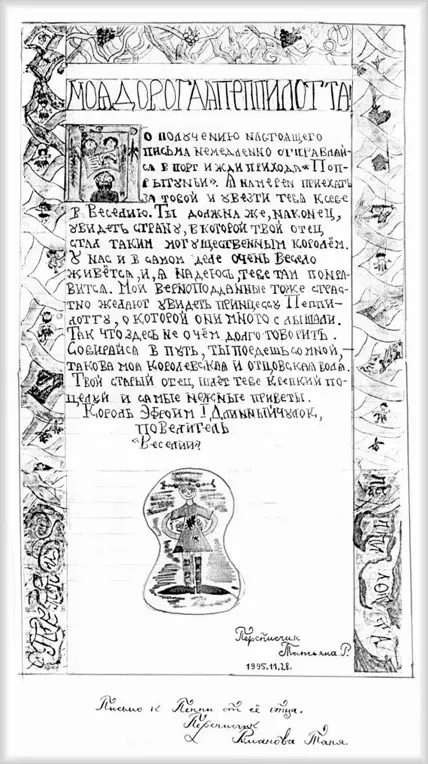 МОЯ ДОРОГАЯ ПЕППИЛОТТА!
ПО ПОЛУЧЕНИЮ НАСТОЯЩЕГО
ПИСЬМА НЕМЕДЛЕННО ОТПРАВЛЯЙ-
СЯ В ПОРТ И ЖДИ ПРИХОДА «ПОП-
РЫГУНЬИ». Я НАМЕРЕН ПРИЕХАТЬ
ЗА ТОБОЙ И УВЕЗТИ ТЕБЯ К СЕБЕ
В ВЕСЕЛИЮ. ТЫ ДОЛЖНА ЖЕ, НАКОНЕЦ,
УВИДЕТЬ СТРАНУ, В КОТОРОЙ ТВОЙ ОТЕЦ
СТАЛ ТАКИМ МОГУЩЕСТВЕННЫМ КОРОЛЁМ.
У НАС И В САМОМ ДЕЛЕ ОЧЕНЬ ВЕСЕЛО
ЖИВЁТСЯ, И, Я НАДЕЮСЬ, ТЕБЕ ТАМ ПОНРА-
ВИТСЯ. МОИ ВЕРНОПОДДАННЫЕ ТОЖЕ СТРАС-
ТНО ЖЕЛАЮТ УВИДЕТЬ ПРИНЦЕССУ ПЕППИ-
ЛОТТУ, О КОТОРОЙ ОНИ МНОГО СЛЫШАЛИ.
ТАК ЧТО ЗДЕСЬ НЕ О ЧЁМ ДОЛГО ГОВОРИТЬ.
СОБИРАЙСЯ В ПУТЬ, ТЫ ПОЕДЕШЬ СО МНОЙ,—
ТАКОВА МОЯ КОРОЛЕВСКАЯ И ОТЦОВСКАЯ ВОЛЯ.
ТВОЙ СТАРЫЙ ОТЕЦ ШЛЁТ ТЕБЕ КРЕПКИЙ ПО-
ЦЕЛУЙ И САМЫЕ НЕЖНЫЕ ПРИВЕТЫ.
КОРОЛЬ ЭФРОИМ I ДЛИННЫЙЧУЛОК,
ПОВЕЛИТЕЛЬ
ВЕСЕЛИИ
Переписчик
Татьяна Р.
1995.11.28.
Письмо к Пеппи от её отца.
Переписчик
Романова Таня.